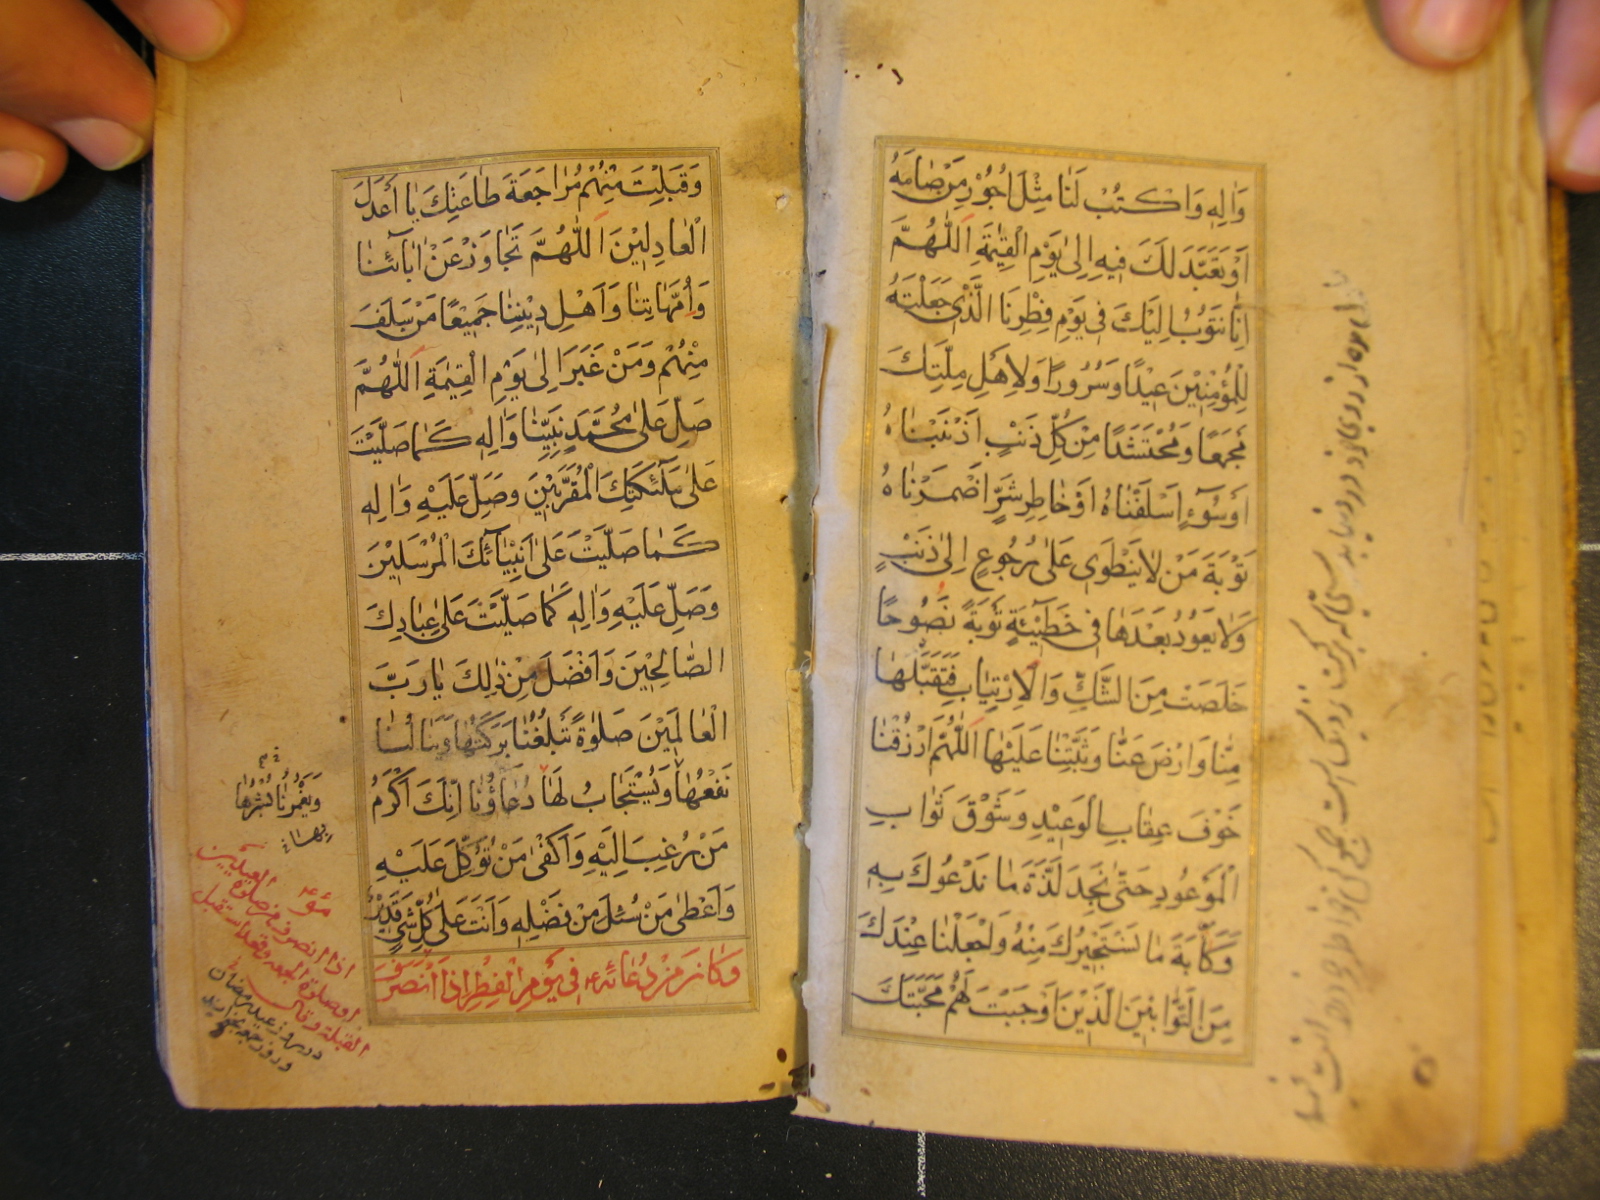 وَاٰلِهِ وَاكْتُبْ لَنٰا مِثْلَ اُجُوْرِ مَنْ صٰامَهُ
اَوْ تَعَبَّدَ لَكَ فِيهِ اِلىٰ يَوْمِ الْقِيٰمَةِ اَللّٰهُمَّ
اِنّٰا نَتُوْبُ اِلَيْكَ فى يَوْمِ فِطْرِنَا الَّذْى جَعَلْتَهُ
لِلْمُؤْمِنِيْنَ عِيْدًا وَسُرُورًا وَلِاَهْلِ مِلَّتِكَ
مَجْمَعًا وَمُحْتَشَدًا مِنْ كُلِّ ذَنْبٍ اَذْنَبْنٰاهُ
اَوْسُوٓءٍ اَسْلَفْنٰاهُ اَوْ خٰاطِرِ شَرٍّ اَضْمَرْنٰاهُ
تَوْبَةَ مَنْ لٰا يَنْطَوى عَلىٰ رُجُوعٍ اِلىٰ ذَنْبٍ
وَلٰا يَعُوْدُ بَعْدَهٰا فى خَطٓيْئَةٍ تَوْبَةً نَصُوحًا
خَلَصَتْ مِنَ الشَّكِّ وَالْاِرْتِيٰابِ فَتَقَبَّلْهٰا
مِنّٰا وَارْضَ عَنّٰا وَثَبِّتْنٰا عَلَيْهٰا اَللّٰهُمَّ ارْزُقْنٰا
خَوْفَ عِقٰابِ الْوَعِيْدِ وَشَوْقَ ثَوٰابِ
الْمَوْعُودِ حَتّىٰ نَجِدَ لَذَّةَ مٰا نَدْعُوكَ بِهِ
وَكَاٰبَةَ مٰا نَسْتَجِيْرُكَ مِنْهُ وَاجْعَلْنٰا عِنْدَكَ
مِنَ التَّوّٰابِيْنَ الَّذِيْنَ اَوْجَبْتَ لَهُمْ مَحَبَّتَكَ
وَقَبِلْتَ مِنْهُمْ مُرٰاجَعَةَ طٰاعَتِكَ يٰا اَعْدَلَ
الْعٰادِلِيْنَ اَللّٰهُمَّ تَجٰاوَزْ عَنْ اٰبٰآئِنٰا
وَاُمَّهٰاتِنٰا وَاَهْلِ دِيْنِنٰا جَمِيْعًا مَنْ سَلَفَ
مِنْهُمْ وَمَنْ غَبَرَ اِلىٰ يَوْمِ الْقِيٰمَةِ اَللّٰهُمَّ
صَلِّ عَلىٰ مُحَمَّدٍ نَبِيِّنٰا وَاٰلِهِ كَمٰا صَلَّيْتَ
عَلىٰ مَلٰٓئِكَتِكَ الْمُقَرَّبِيْنَ وَصَلِّ عَلَيْهِ وَاٰلِهِ
كَمٰا صَلَّيْتَ عَلىٰ اَنْبِيٰآئِكَ الْمُرْسَلِيْنَ
وَصَلِّ عَلَيْهِ وَاٰلِهِ كَمٰا صَلَّيْتَ عَلىٰ عِبٰادِكَ
الصّٰالِحِيْنَ وَاَفْضَلَ مِنْ ذٰلِكَ يٰا رَبَّ
الْعٰالَمِيْنَ صَلٰوةً تَبْلُغُنٰا بَرَكَتُهٰا وَيَنٰالُنٰا
نَفْعُهٰا وَيُسْتَجٰابُ لَهٰا دُعٰاؤُنٰا اِنَّكَ اَكْرَمُ
مَنْ رُغِبَ اِلَيْهِ وَاَكْفىٰ مَنْ تُوُكِّلَ عَلَيْهِ
وَاَعْطىٰ مَنْ سُئِلَ مِنْ فَضْلِهِ وَاَنْتَ عَلىٰ كُلِّ شَىْءٍ قَدِيْرٌ
وَكٰانَ مِنْ دُعٰائِهِ ع فى يَوْمِ الْفِطْرِ اِذَا انْصَرَفَ
اذا انصرف من صلوة العيدين
او صلوة الجمعة وقف استقبل
القبلة وقال